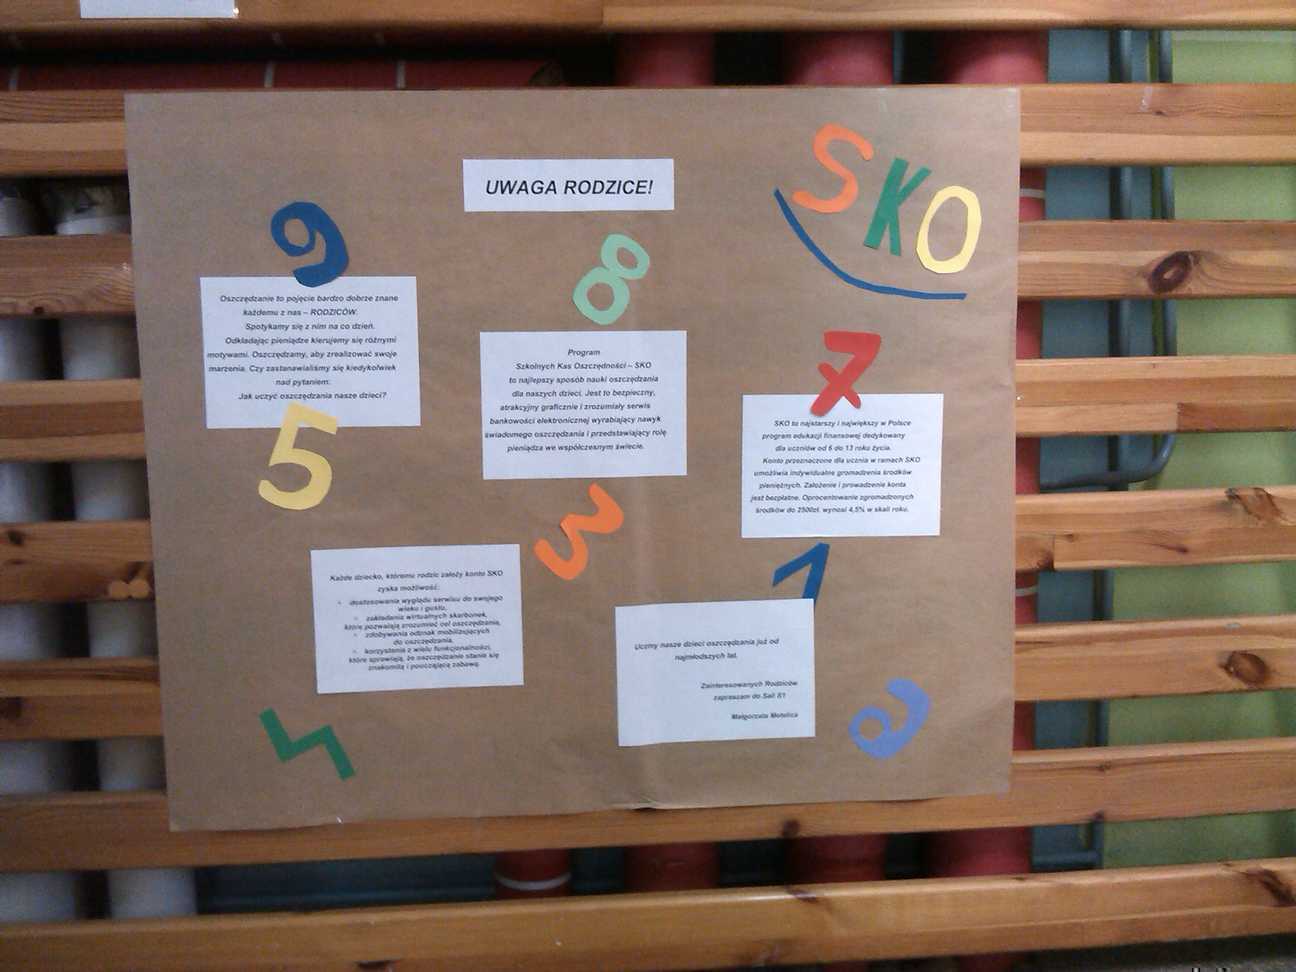 UWAGA RODZICE!
SKO
9
Oszczędzanie to pojęcie bardzo dobrze znane
każdemu z nas – RODZICÓW.
Spotykamy się z nim na co dzień.
Odkładając pieniądze kierujemy się różnymi
motywami. Oszczędzamy, aby zrealizować swoje
marzenia. Czy zastanawialiśmy się kiedykolwiek
nad pytaniem:
Jak uczyć oszczędzania nasze dzieci?
5
8
Program
Szkolnych Kas Oszczędności – SKO
to najlepszy sposób nauki oszczędzania
dla naszych dzieci. Jest to bezpieczny,
atrakcyjny graficznie i zrozumiały serwis
bankowości elektronicznej wyrabiający nawyk
świadomego oszczędzania i przedstawiający rolę
pieniądza we współczesnym świecie.
3
7
SKO to najstarszy i największy w Polsce
program edukacji finansowej dedykowany
dla uczniów od 6 do 13 roku życia.
Konto przeznaczone dla ucznia w ramach SKO
umożliwia indywidualne gromadzenie środków
pieniężnych. Założenie i prowadzenie konta
jest bezpłatne. Oprocentowanie zgromadzonych
środków do 2500zł. wynosi 4,5% w skali roku.
1
Każde dziecko, któremu rodzic założy konto SKO
zyska możliwość:
• dostosowania wyglądu serwisu do swojego
wieku i gustu,
• zakładania wirtualnych skarbonek,
które pozwalają zrozumieć cel oszczędzania,
• zdobywania odznak mobilizujących
do oszczędzania,
• korzystania z wielu funkcjonalności,
które sprawiają, że oszczędzanie stanie się
znakomitą i pouczającą zabawą.
4
Uczmy nasze dzieci oszczędzania już od
najmłodszych lat.
Zainteresowanych Rodziców
zapraszam do Sali S1
Małgorzata Motelica
6